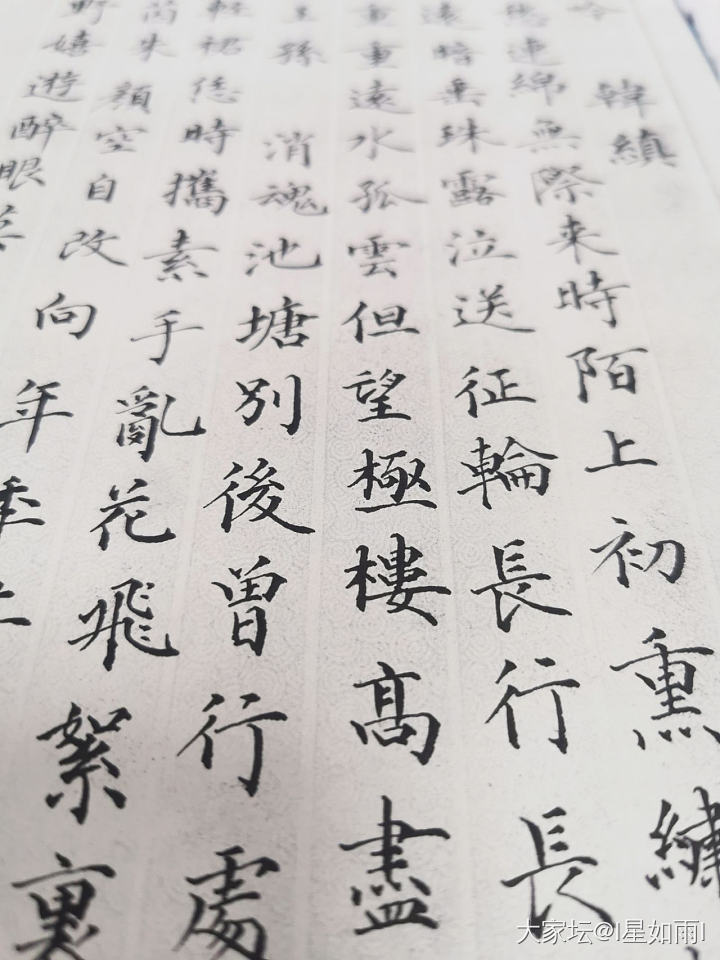 吟
韓縝
愁連綿無際来時陌上初熏繡
遠暗垂珠露泣送征輪長行長
重重遠水孤雲但望極樓高盡
王孫 消魂池塘別後曾行處
輕裙恁時攜素手亂花飛絮裏
茵朱顏空自改向年秊
野嬉遊醉眼
大家坛@l星如雨l